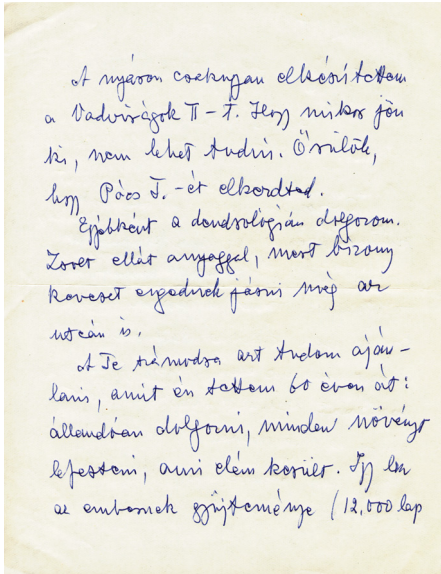 A nyáron csakugyan elkészítettem
a Vadvirágok II-t. Hogy mikor jön
ki, nem lehet tudni. Örülök,
hogy Pócs T.-ét elkezdted.
Egyébként a dendrológián dolgozom.
ellát anyaggal, mert bizony
keveset engednek járni még az
utcán is.
A Te számodra azt tudom aján-
lani, amit én tettem 60 éven át:
állandóan dolgozni, minden növényt
lefesteni, ami elém került. Így lesz
az embernek gyűjteménye (12.000 lap